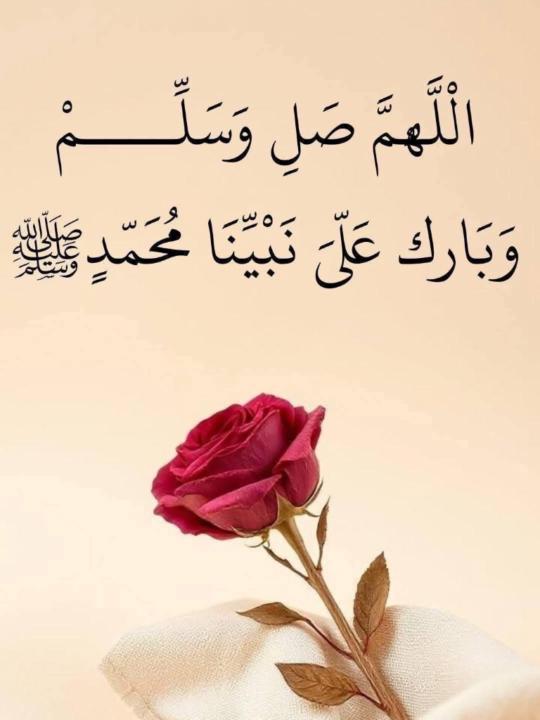 الْلَّهمَّ صَلِ وَسَلِّـــــمْ
وَبَارك عَلَىّ نَبْيِّنَا مُحَمّدٍ ﷺ